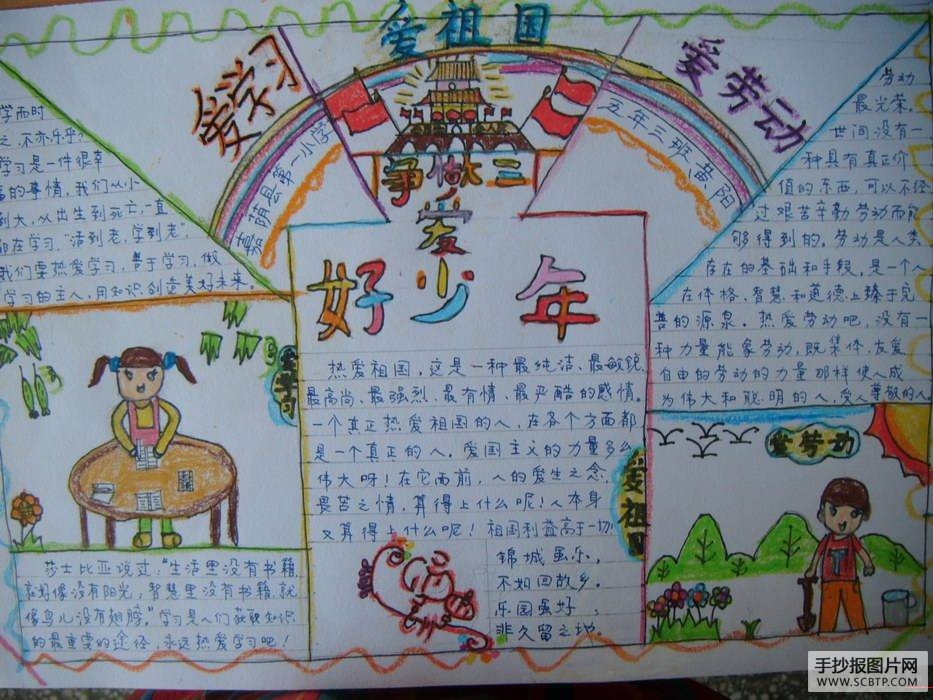 爱祖国
爱学习
爱劳动
争做三
爱
好少年
嘉荫县第一小学
五年三班黄阳
学而时
之,不亦乐乎?
学习是一件很幸
福的事情,我们从小
到大,从出生到死亡,一直
都在学习,"活到老,学到老"
我们要热爱学习,善于学习,做
学习的主人,用知识创造美好未来。
劳动
最光荣,
世间没有一
种具有真正价
值的东西,可以不经
过艰苦辛勤劳动而能
够得到的。劳动是人类
存在的基础和手段,是一个人
在体格、智慧和道德上臻于完
善的源泉。热爱劳动吧,没有一
种力量能象劳动,既集体、友爱
自由的劳动的力量那样使人成
为伟大和聪明的人,受人尊敬的人
热爱祖国,这是一种最纯洁、最敏锐
最高尚、最强烈、最有情、最严酷的感情。
一个真正热爱祖国的人,在各个方面都
是一个真正的人。爱国主义的力量多么
伟大呀!在它面前,人的爱生之念,
畏苦之情,算得上什么呢!人本身
又算得上什么呢!祖国利益高于一切!
锦城虽乐,
不如回故乡。
乐园虽好,
非久留之地。
爱学习
爱祖国
爱劳动
莎士比亚说过:"生活里没有书籍,
就好像没有阳光,智慧里没有书籍,就
像鸟儿没有翅膀。"学习是人们获取知识
的最重要的途径,永远热爱学习吧!
T
手抄报图片网
WWW.SCBTP.COM